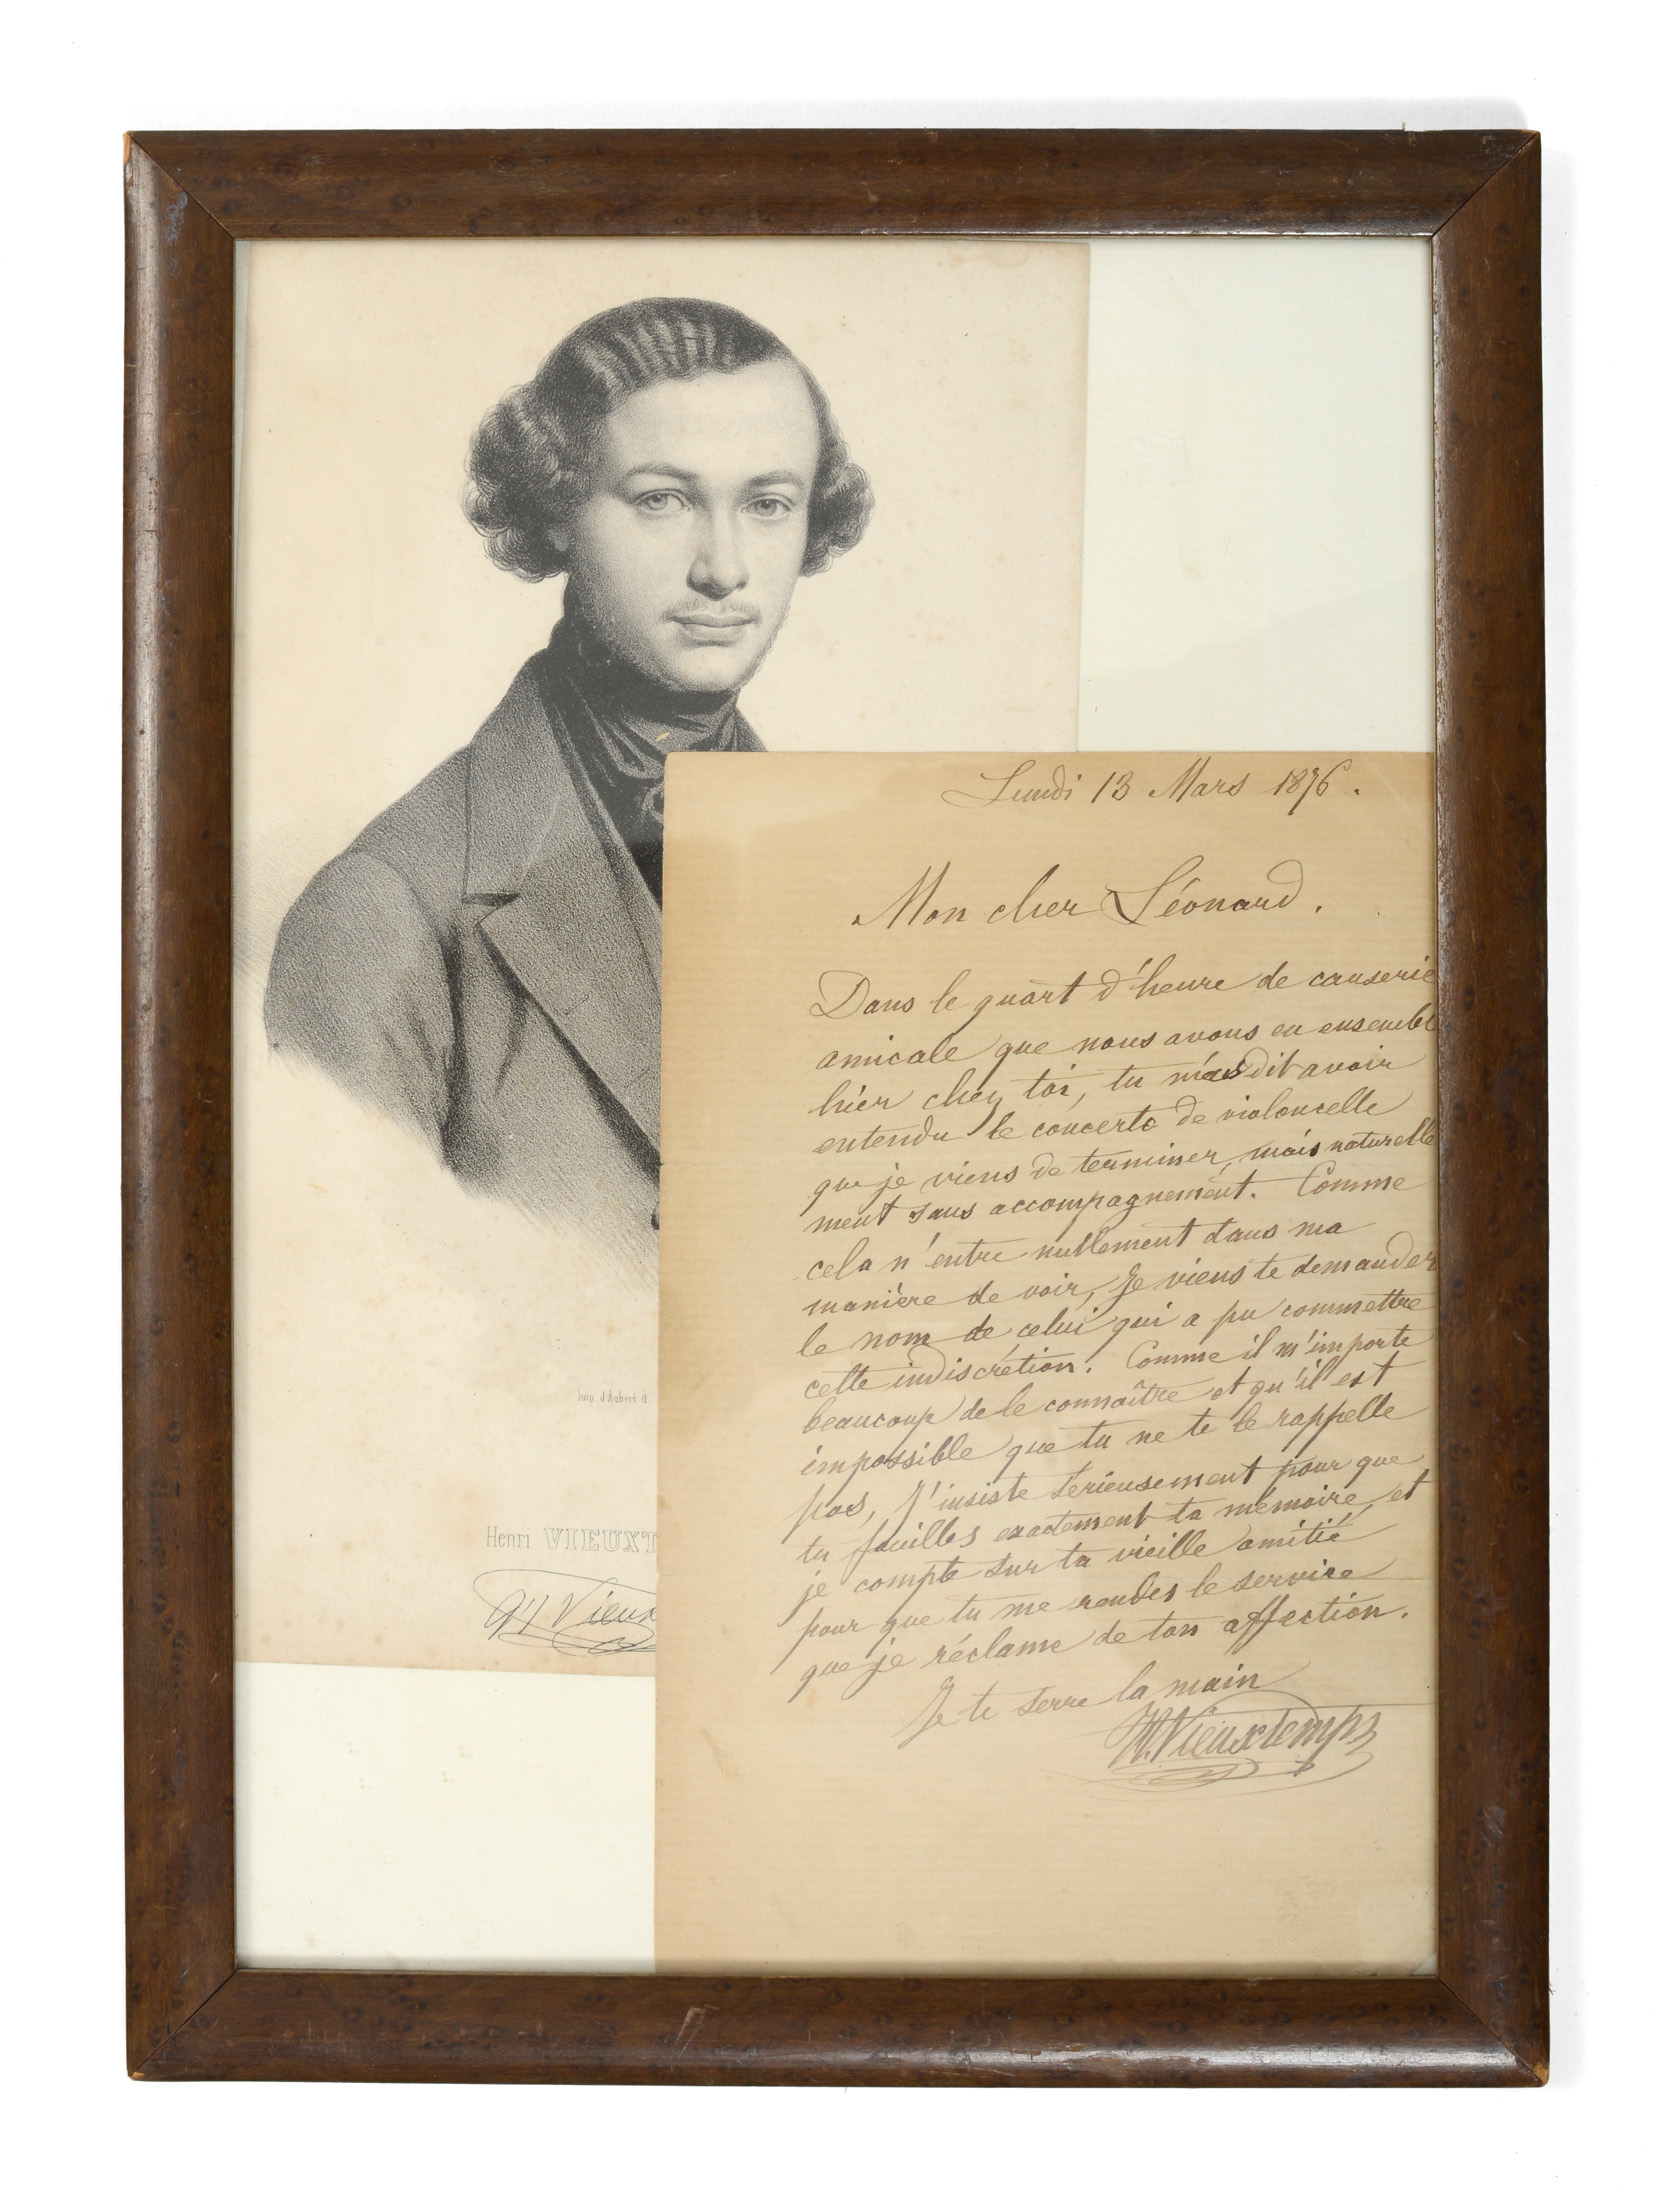 Imp. d'Aubert &
Henri VIEUXT
H Vieux
Lundi 13 Mars 1876.
Mon cher Léonard.
Dans le quart d'heure de causerie
amicale que nous avons eu ensemble
hier chez toi, tu m'as dit avoir
entendu le concerto de violoncelle
que je viens de terminer, mais naturelle
ment sans accompagnement. Comme
cela n'entre nullement dans ma
manière de voir, je viens te demander
le nom de celui qui a pu commettre
cette indiscrétion. Comme il m'importe
beaucoup de le connaître et qu'il est
impossible que tu ne te le rappelle
pas, j'insiste sérieusement pour que
tu fouilles exactement ta mémoire, et
je compte sur ta vieille amitié
pour que tu me rendes le service
que je réclame de ton affection.
Je te serre la main
H. Vieuxtemps